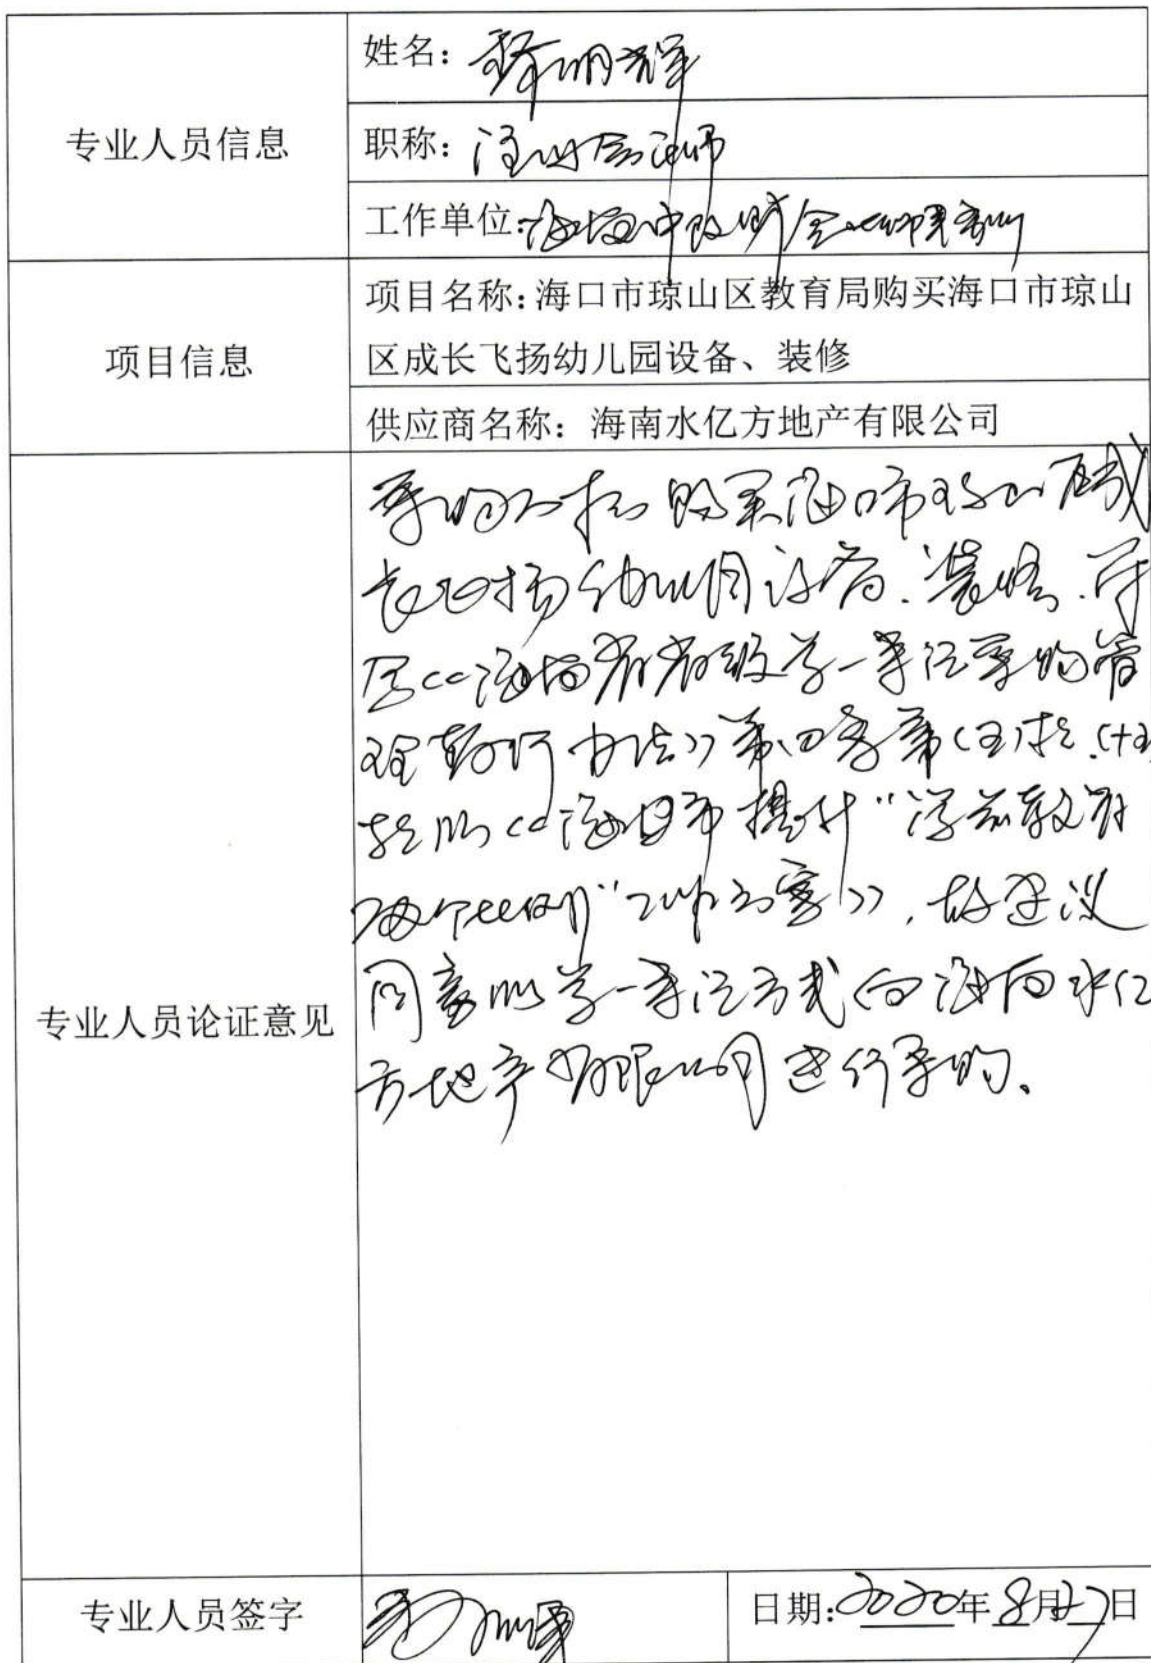 专业人员信息
姓名：
职称：注册会计师
工作单位：海南中政财会
项目信息
项目名称：海口市琼山区教育局购买海口市琼山
区成长飞扬幼儿园设备、装修
供应商名称：海南水亿方地产有限公司
专业人员论证意见
采购人拟购买海口市琼山区成
长飞扬幼儿园设备、装修，符
合《海南省省级单一来源采购管
理暂行办法》第四条第(五)款、(十五)
款以《海口市提升“学前教育
两个比例”工作方案》，故建议
同意以单一来源方式向海南水亿
方地产有限公司进行采购。
专业人员签字
日期：2020年8月27日